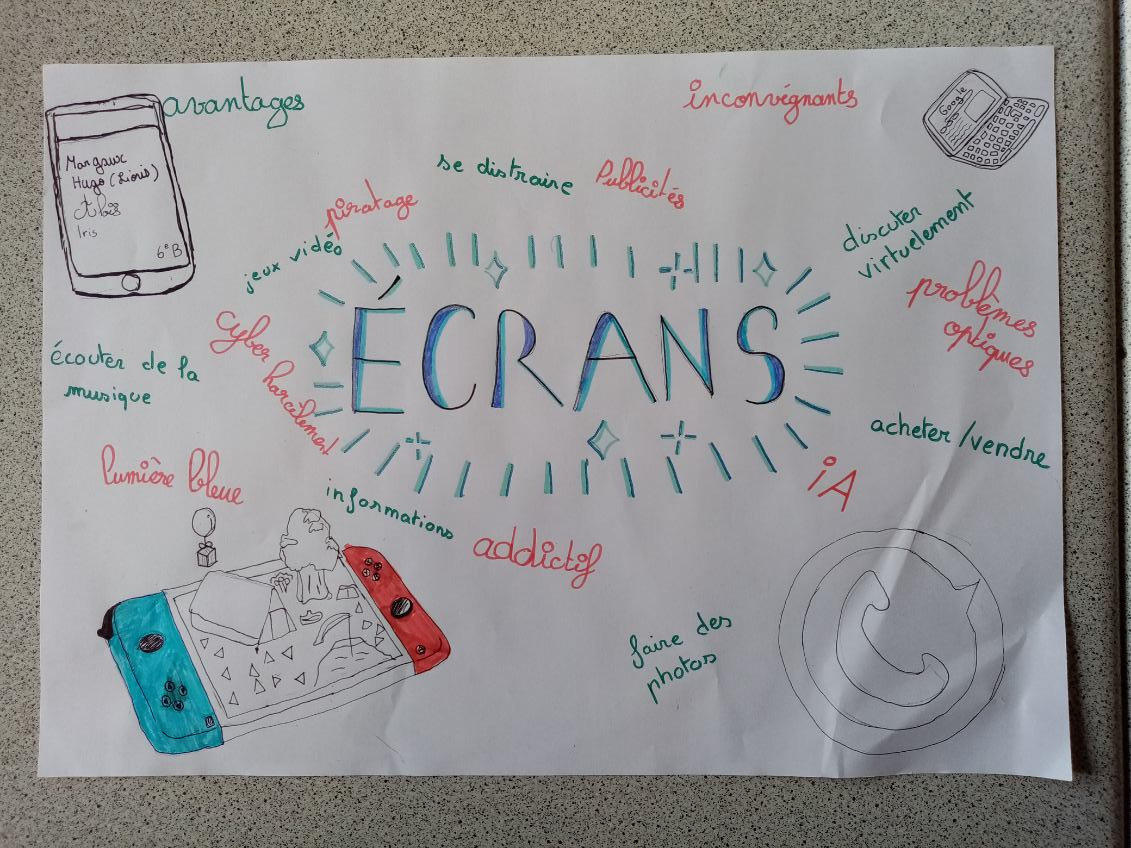 avantages
inconvégnants
Google
Margaux
Hugo (Lioris)
Iris
6e B
se distraire
Publicités
piratage
jeux vidéo
discuter
virtuelement
problèmes
optiques
cyber
harcèlement
ÉCRANS
écouter de la
musique
acheter/vendre
lumière bleue
iA
informations
addictif
faire des
photos